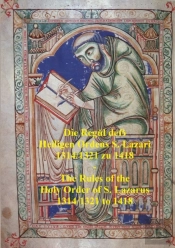 Die Regél deß
Heiligen Ordens S. Lazari
1314/1321 zu 1418
The Rules of the
Holy Order of S. Lazarus
1314/1321 to 1418